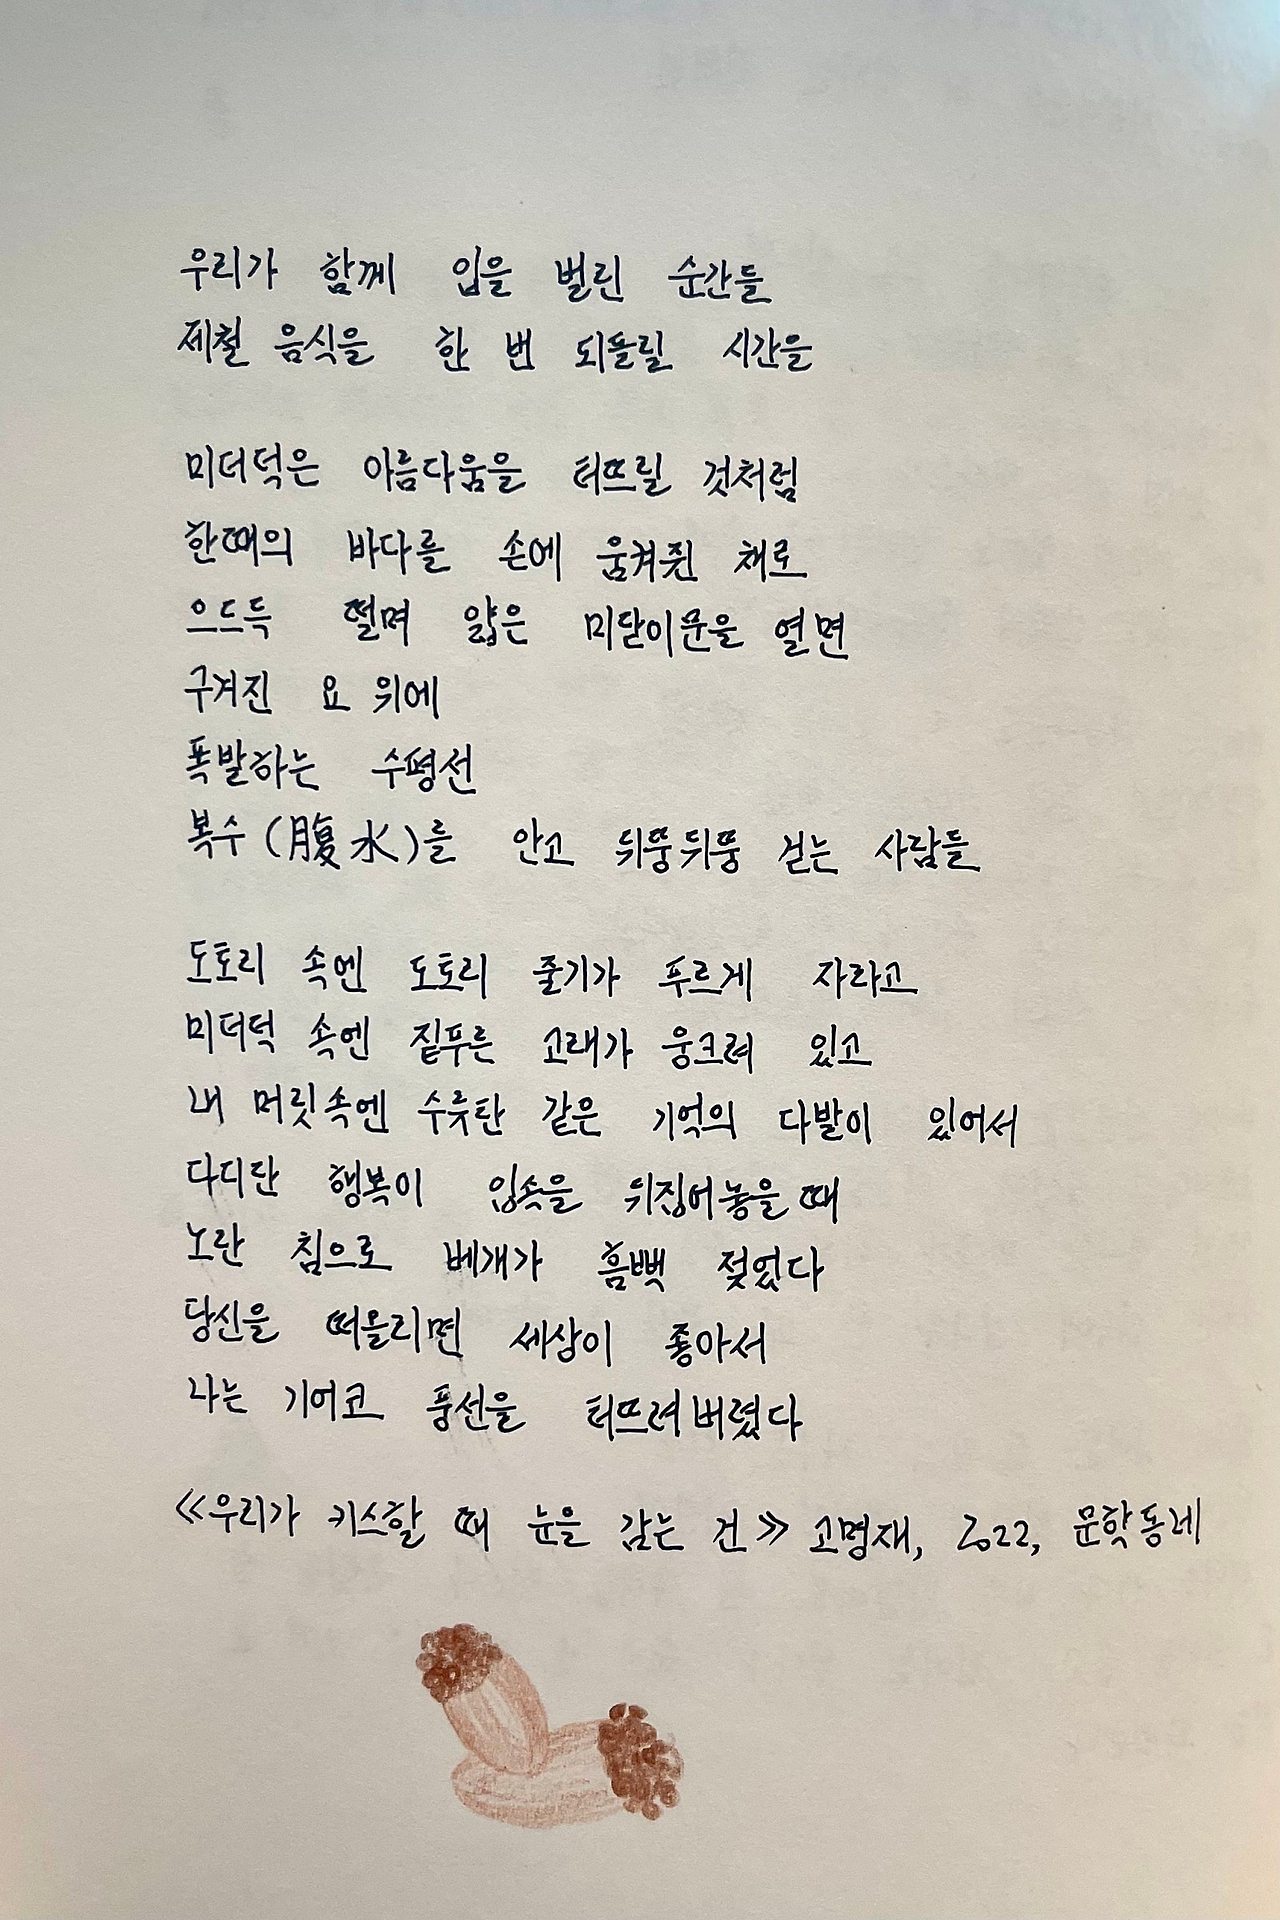 우리가 함께 입을 벌린 순간들
제철 음식을 한 번 되풀릴 시간을
미더덕은 아름다움을 터뜨릴 것처럼
한때의 바다를 손에 움켜쥔 채로
으드득 떨며 얇은 미닫이문을 열면
구겨진 요 위에
폭발하는 수평선
복수(腹水)를 안고 뒤뚱뒤뚱 걷는 사람들
도토리 속엔 도토리 줄기가 푸르게 자라고
미더덕 속엔 짙푸른 고래가 웅크려 있고
내 머릿속엔 수륫탄 같은 기억의 다발이 있어서
다디단 행복이 입속을 뒤집어놓을 때
노란 침으로 베개가 흠뻑 젖었다
당신을 떠올리면 세상이 좋아서
나는 기어코 풍선을 터뜨려버렸다
《우리가 키스할 때 눈을 감는 건》 고명재, 2022, 문학동네